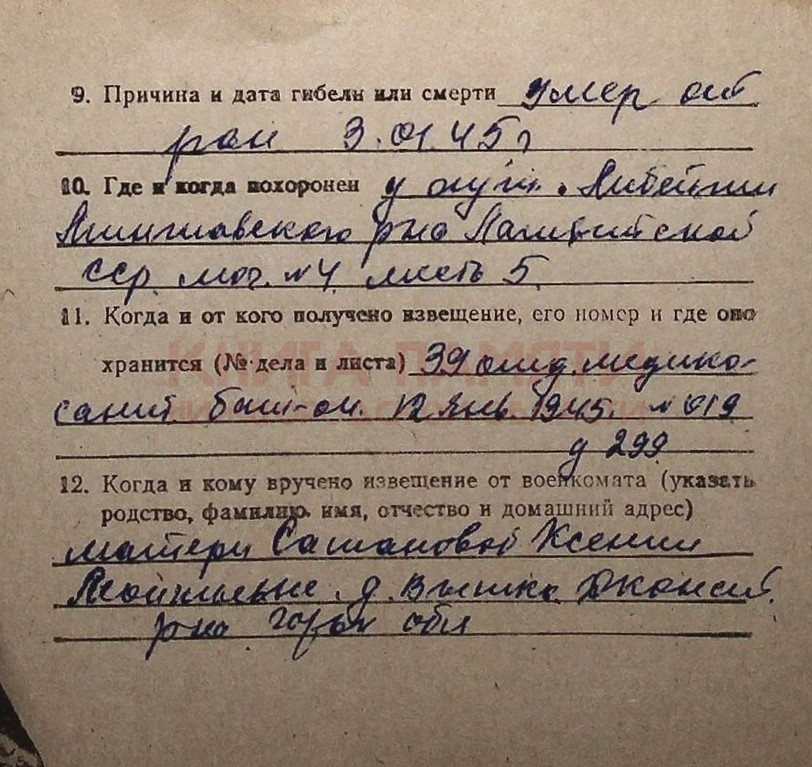 9. Причина и дата гибели или смерти умер от
ран 3.01.45 г
10. Где и когда похоронен у
р-на Латвийской
ССР. мог. №4 место 5.
11. Когда и от кого получено извещение, его номер и где оно
хранится (№ дела и листа) 39 отд. медико-
КНИГА ПАМЯТИ
санит. бат-ом. 12 янв. 1945. №019
д 299
12. Когда и кому вручено извещение от военкомата (указать
родство, фамилию, имя, отчество и домашний адрес)
матери Ксении
д.
р-на Горьк обл